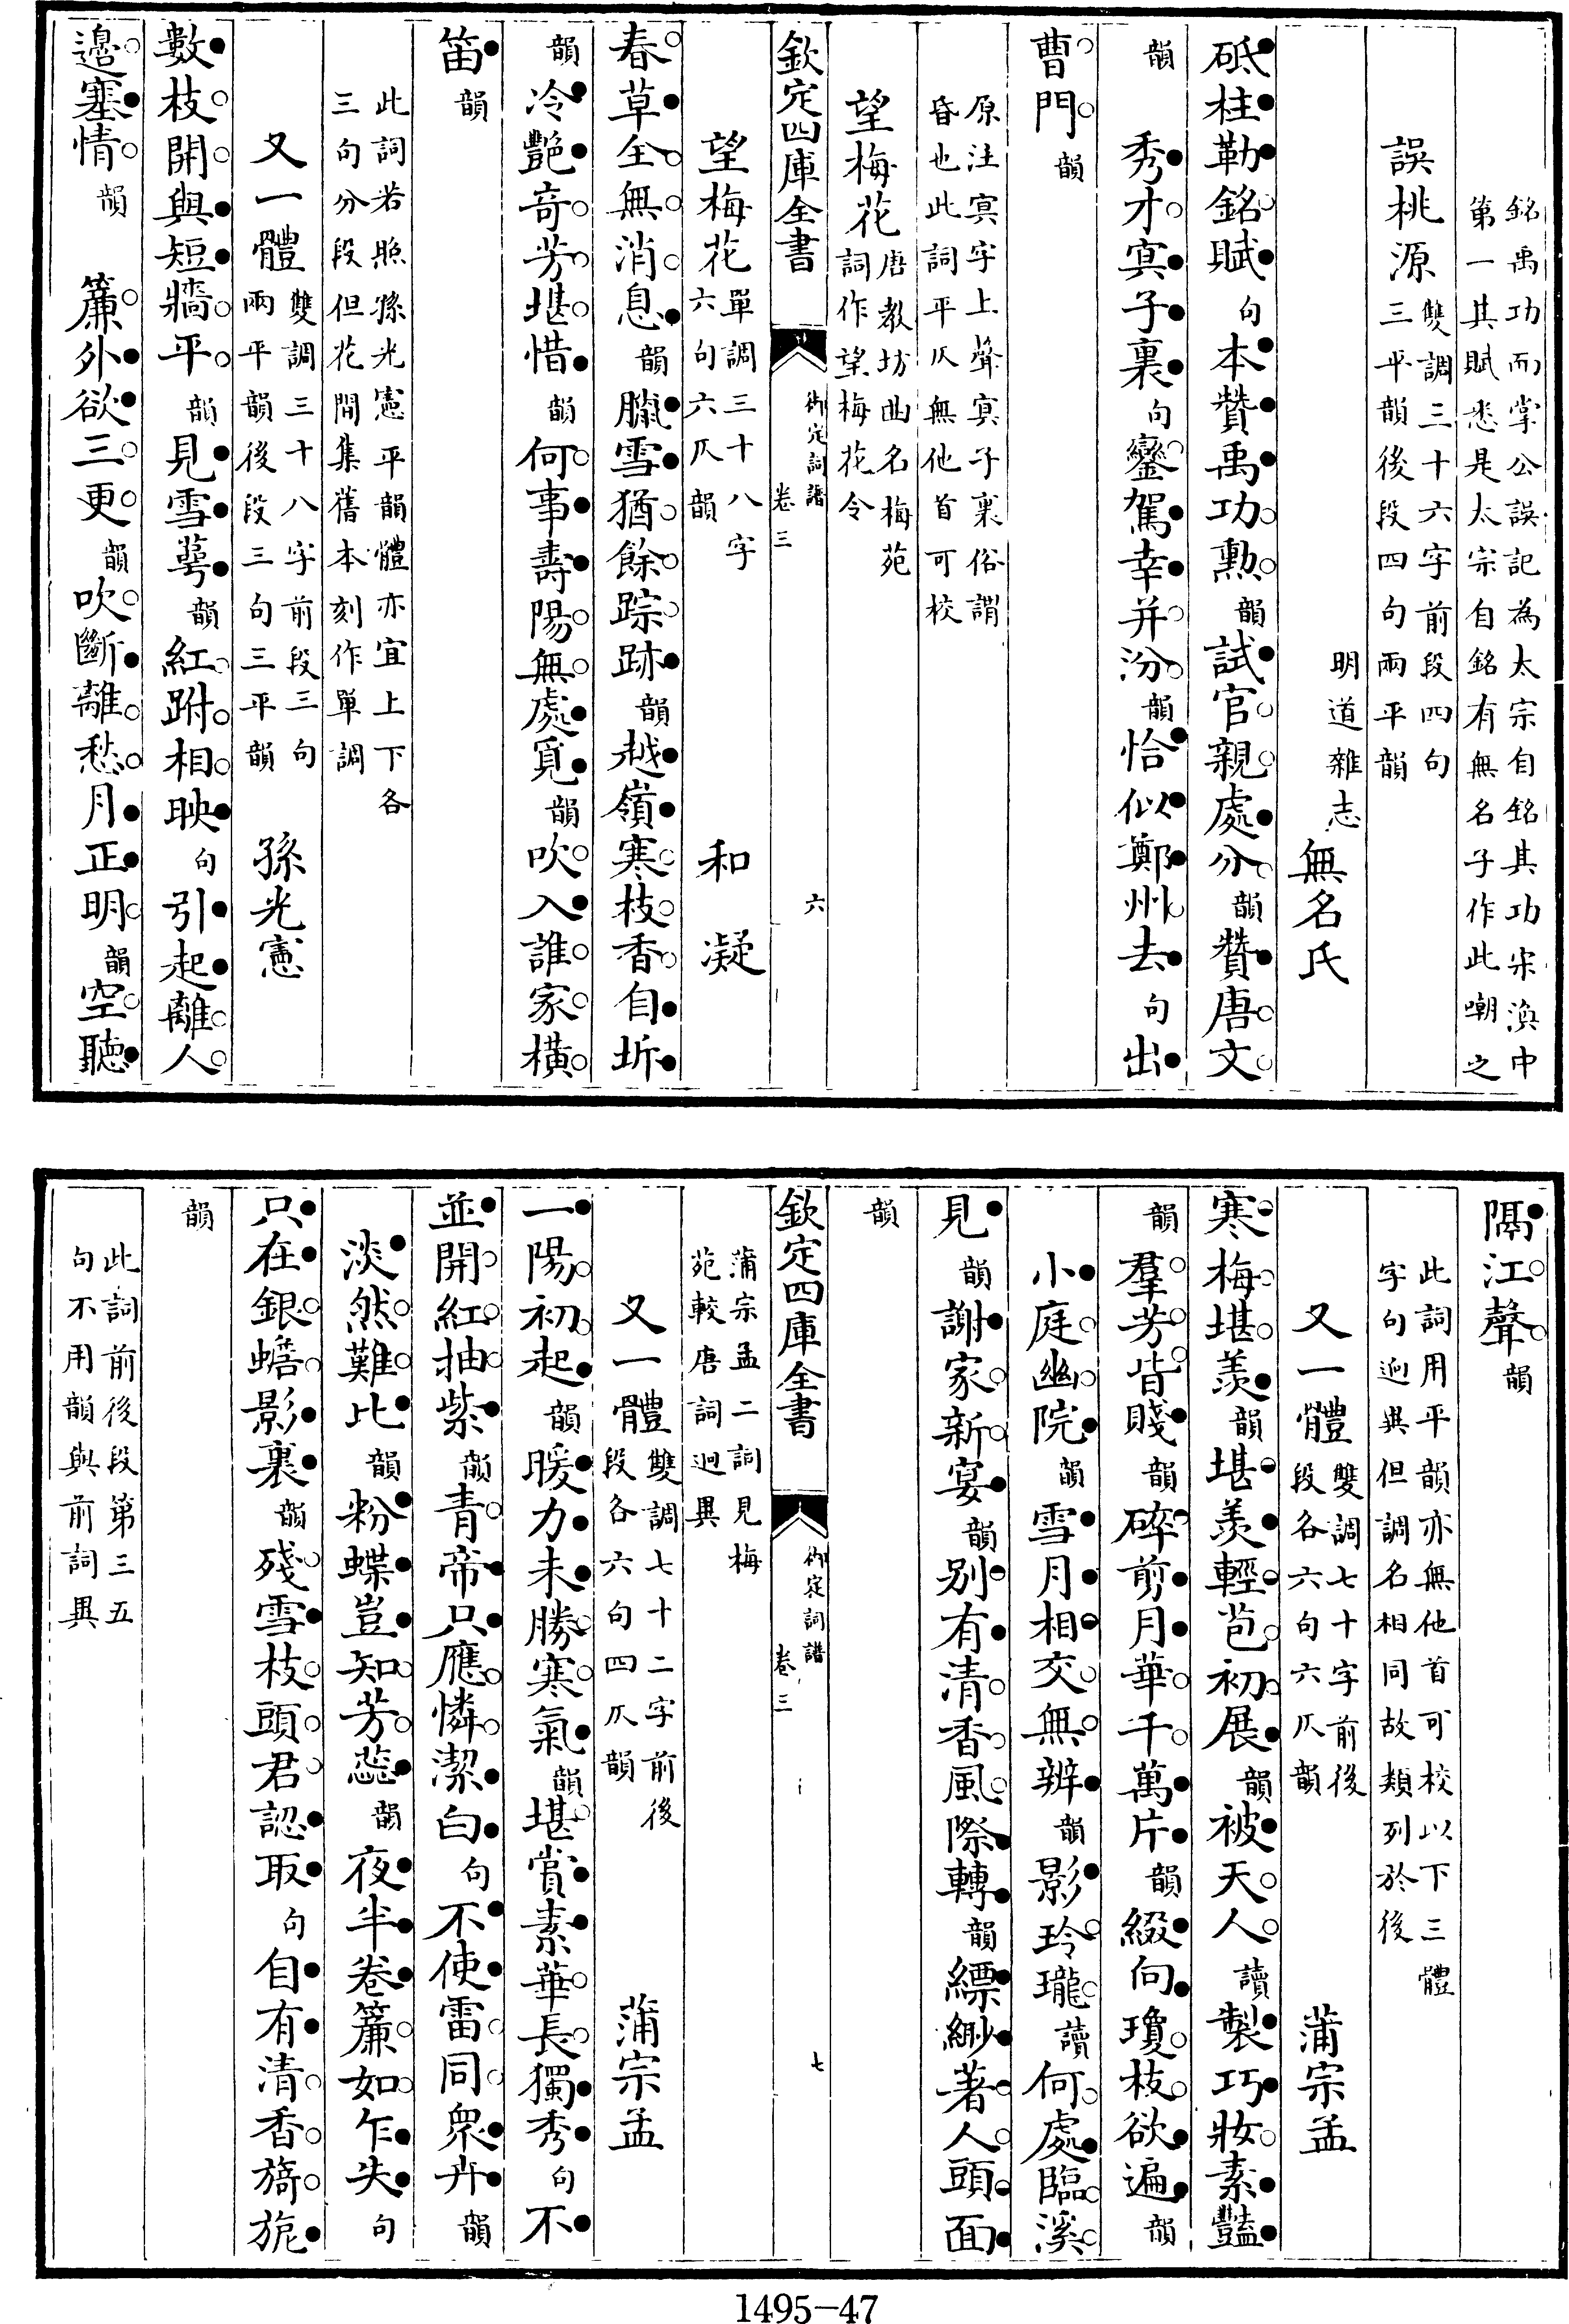 銘禹功而掌公誤記為太宗自銘其功宋渙中
第一其賦悉是太宗自銘有無名子作此嘲之
誤桃源雙調三十六字前段四句
三平韻後段四句兩平韻
明道雜志無名氏
砥柱勒銘賦句本贊禹功勲韻試官親處分韻贊唐文
韻秀才㝠子裏句鑾駕幸并汾韻恰似鄭州去句出
曹門韻
原注㝠字上聲㝠子裏俗謂
昏也此詞平仄無他首可校
望梅花唐教坊曲名梅苑
詞作望梅花令
欽定四庫全書
御定詞譜
卷三
六
望梅花單調三十八字
六句六仄韻
和凝
春草全無消息韻臘雪猶餘踪跡韻越嶺寒枝香自坼
韻冷艷奇芳堪惜韻何事壽陽無處覓韻吹入誰家橫
笛韻
此詞若照孫光憲平韻體亦宜上下各
三句分段但花間集舊本刻作單調
又一體雙調三十八字前段三句
兩平韻後段三句三平韻
孫光憲
數枝開與短牆平韻見雪萼韻紅跗相映句引起離人
邊塞情韻簾外欲三更韻吹斷離愁月正明韻空聽
隔江聲韻
此詞用平韻亦無他首可校以下三體
字句逈異但調名相同故類列於後
又一體雙調七十字前後
段各六句六仄韻
蒲宗孟
寒梅堪羨韻堪羨輕苞初展韻被天人讀製巧妝素豔
韻羣芳皆賤韻碎剪月華千萬片韻綴向瓊枝欲遍韻
小庭幽院韻雪月相交無辨韻影玲瓏讀何處臨溪
見韻謝家新宴韻别有清香風際轉韻縹緲著人頭面
韻
欽定四庫全書
御定詞譜
卷三
七
蒲宗孟二詞見梅
苑較唐詞迥異
又一體雙調七十二字前後
段各六句四仄韻
蒲宗孟
一陽初起韻暖力未勝寒氣韻堪賞素華長獨秀句不
並開紅抽紫韻青帝只應憐潔白句不使雷同衆卉韻
淡然難比韻粉蝶豈知芳蕊韻夜半卷簾如乍失句
只在銀蟾影裏韻殘雪枝頭君認取句自有清香旖旎
韻
此詞前後段第三五
句不用韻與前詞異
1495-47